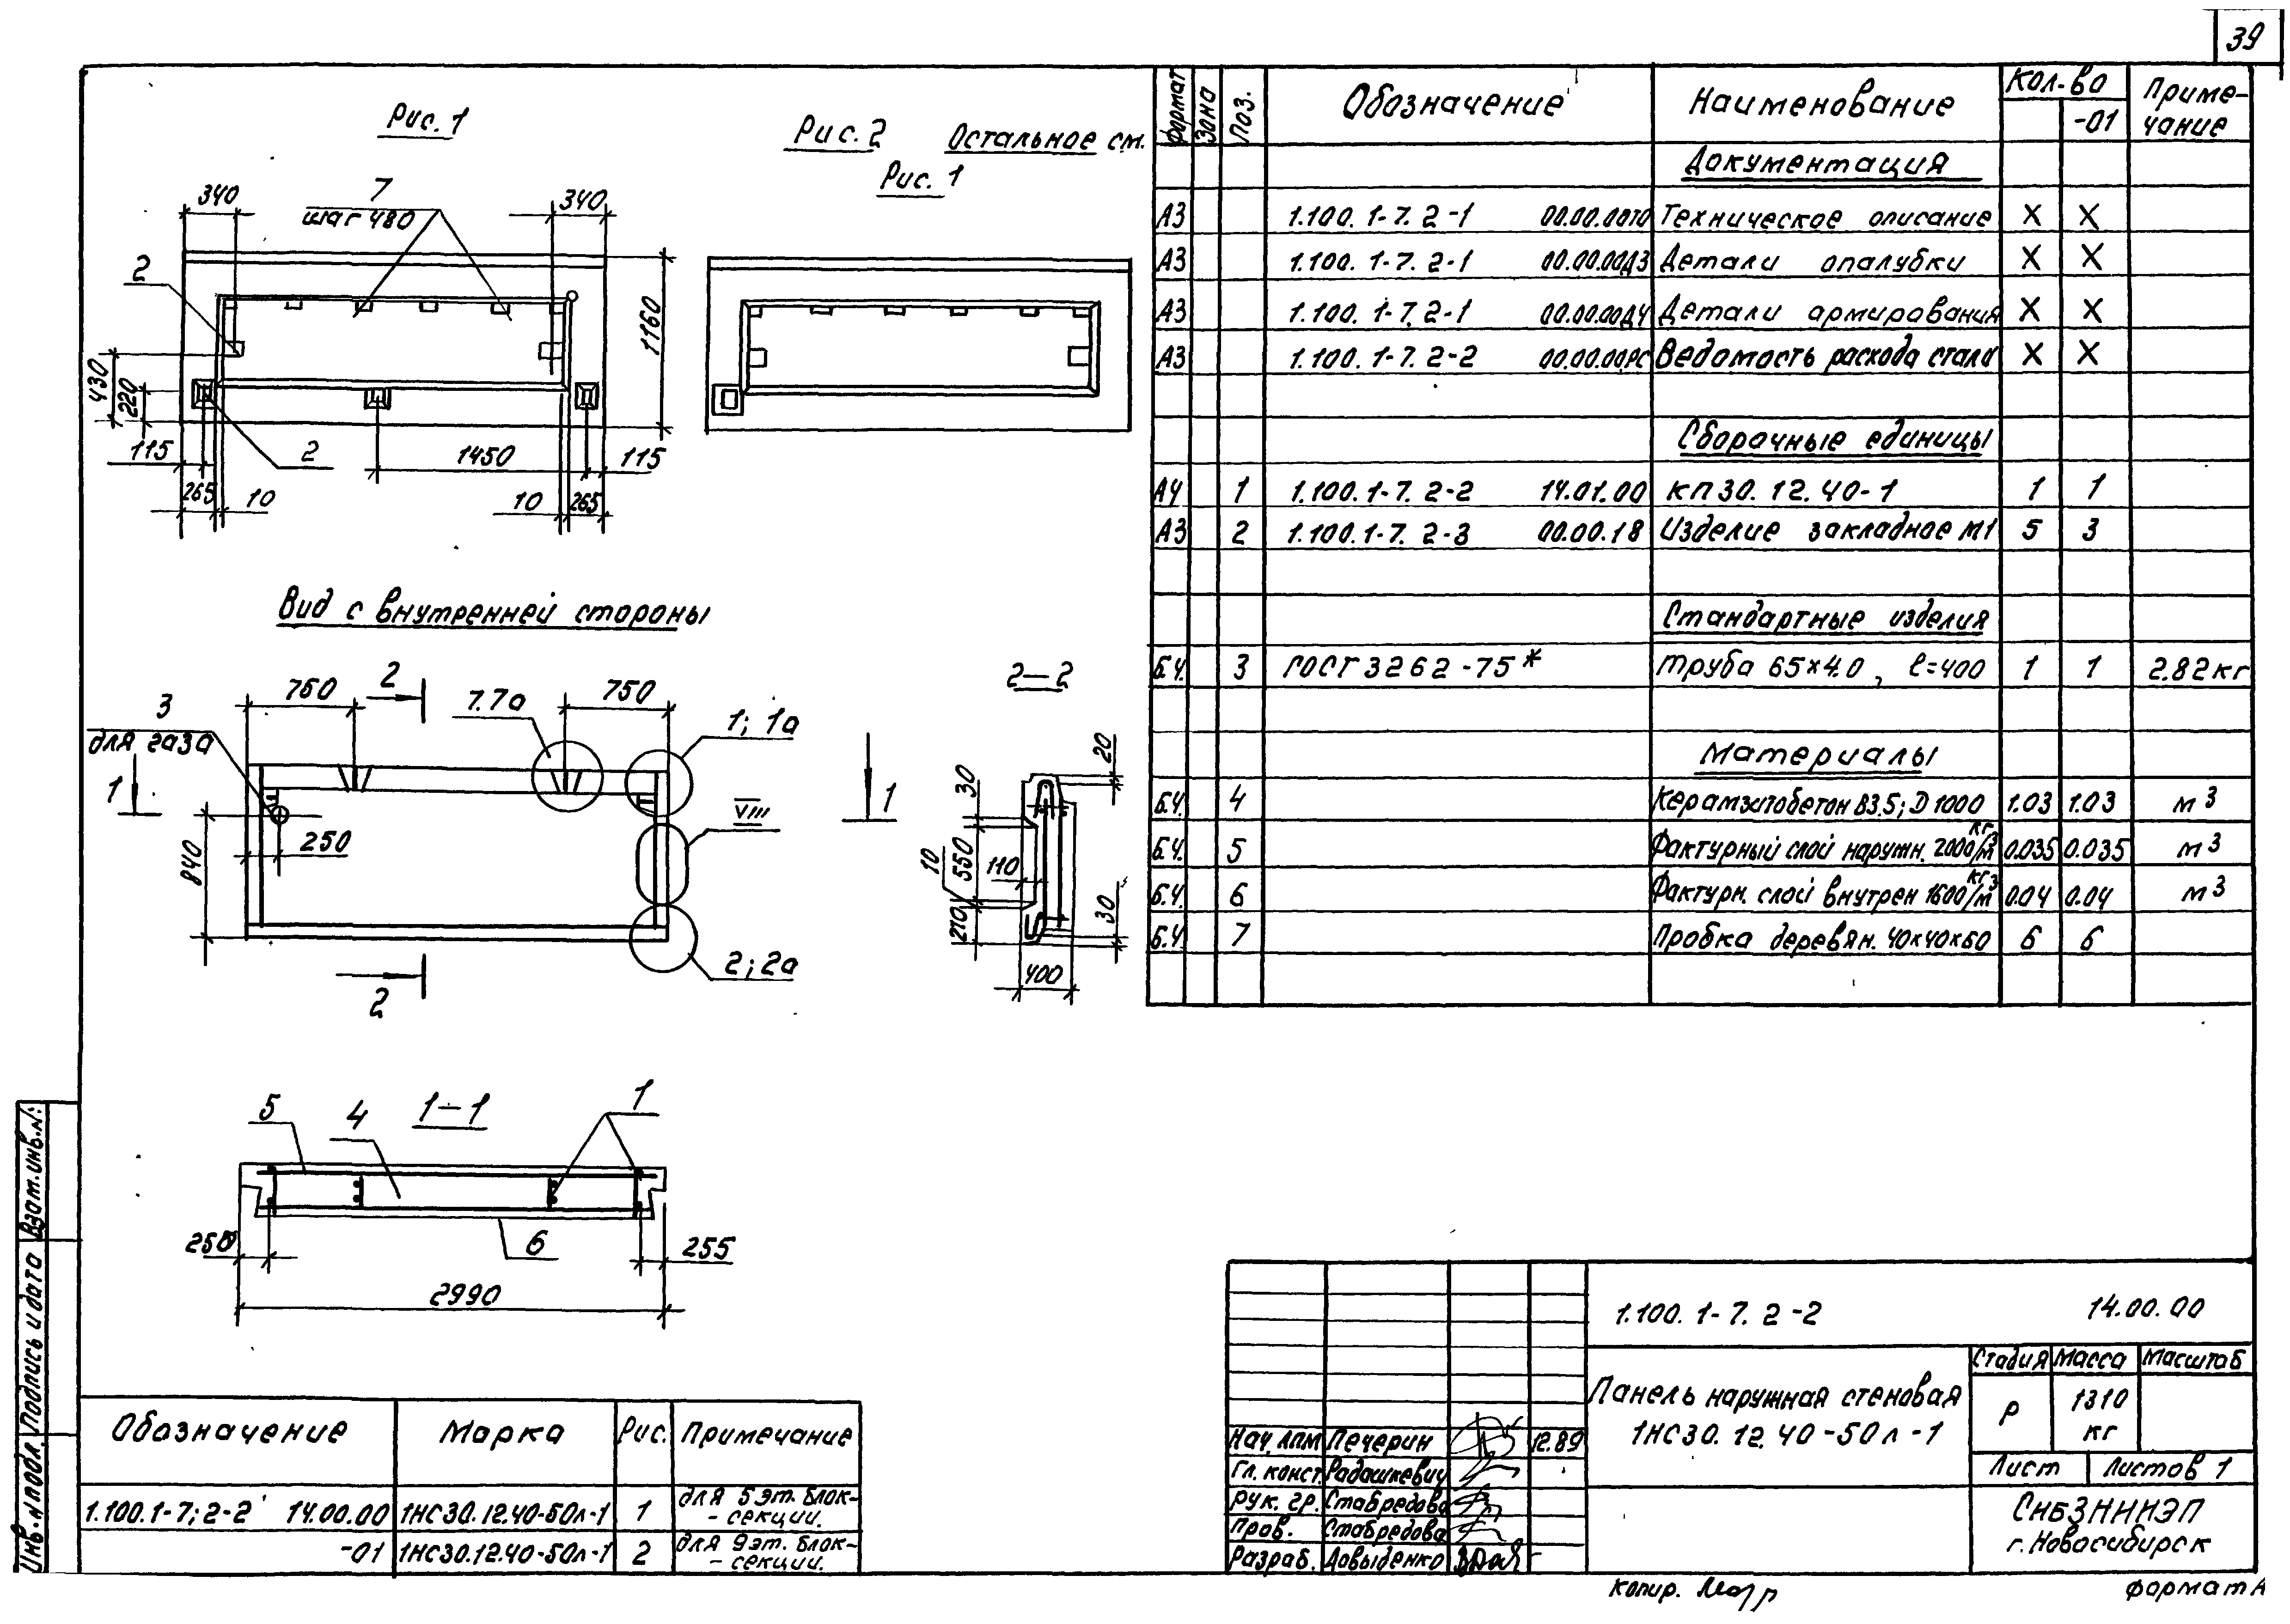 39
Рис. 1
Рис. 2 Остальное см.
Рис. 1
340
7
шаг 480
340
2
1160
430
220
115
2
1450
115
265
10
10
265
Вид с внутренней стороны
2
750
750
7.7а
1; 1а
3
для газа
1
1
VIII
250
840
2; 2а
2
2—2
20
30
10
550
110
210
30
400
1—1
5
4
1
6
250
255
2990
Формат
Зона
Поз.
Обозначение
Наименование
Кол-во
-01
Приме-
чание
Документация
А3 1.100.1-7.2-1 00.00.00ТО Техническое описание X X
А3 1.100.1-7.2-1 00.00.00Д3 Детали опалубки X X
А3 1.100.1-7.2-1 00.00.00Д4 Детали армирования X X
А3 1.100.1-7.2-2 00.00.00РС Ведомость расхода стали X X
Сборочные единицы
А4 1 1.100.1-7.2-2 14.01.00 КП30.12.40-1 1 1
А3 2 1.100.1-7.2-3 00.00.18 Изделие закладное М1 5 3
Стандартные изделия
Б.Ч. 3 ГОСТ 3262-75* Труба 65×4.0, ℓ=400 1 1 2.82кг
Материалы
Б.Ч. 4 Керамзитобетон В3.5; D1000 1.03 1.03 м³
Б.Ч. 5 Фактурный слой наружн. 2000кг/м³ 0.035 0.035 м³
Б.Ч. 6 Фактурн. слой внутрен 1600кг/м³ 0.04 0.04 м³
Б.Ч 7 Пробка деревян. 40×40×60 6 6
Обозначение Марка Рис. Примечание
1.100.1-7; 2-2 14.00.00 1НС30.12.40-50л-1 1 для 5 эт. блок-
- секции.
-01 1НС30.12.40-50л-1 2 для 9 эт. блок-
- секции.
1.100.1-7.2-2 14.00.00
Панель наружная стеновая
1НС30.12.40-50л-1
Стадия Масса Масштаб
Р 1310
кг
Лист Листов 1
СибЗНИИЭП
г. Новосибирск
Нач. ЛПМ Печерин 12.89
Гл. конст. Радашкевич
Рук. гр. Стабредова
Пров. Стабредова
Разраб. Давыденко
копир.
формат А
Инв. № подл.
Подпись и дата
Взам. инв. №